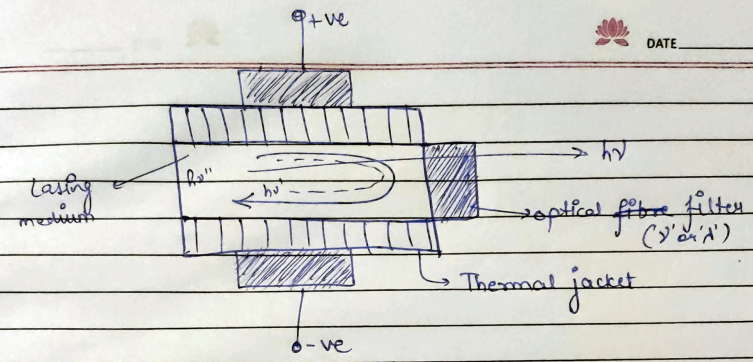 +ve
DATE
hν
hν''
hν'
Lasing
medium
optical fibre filter
(ν' or λ')
Thermal jacket
-ve